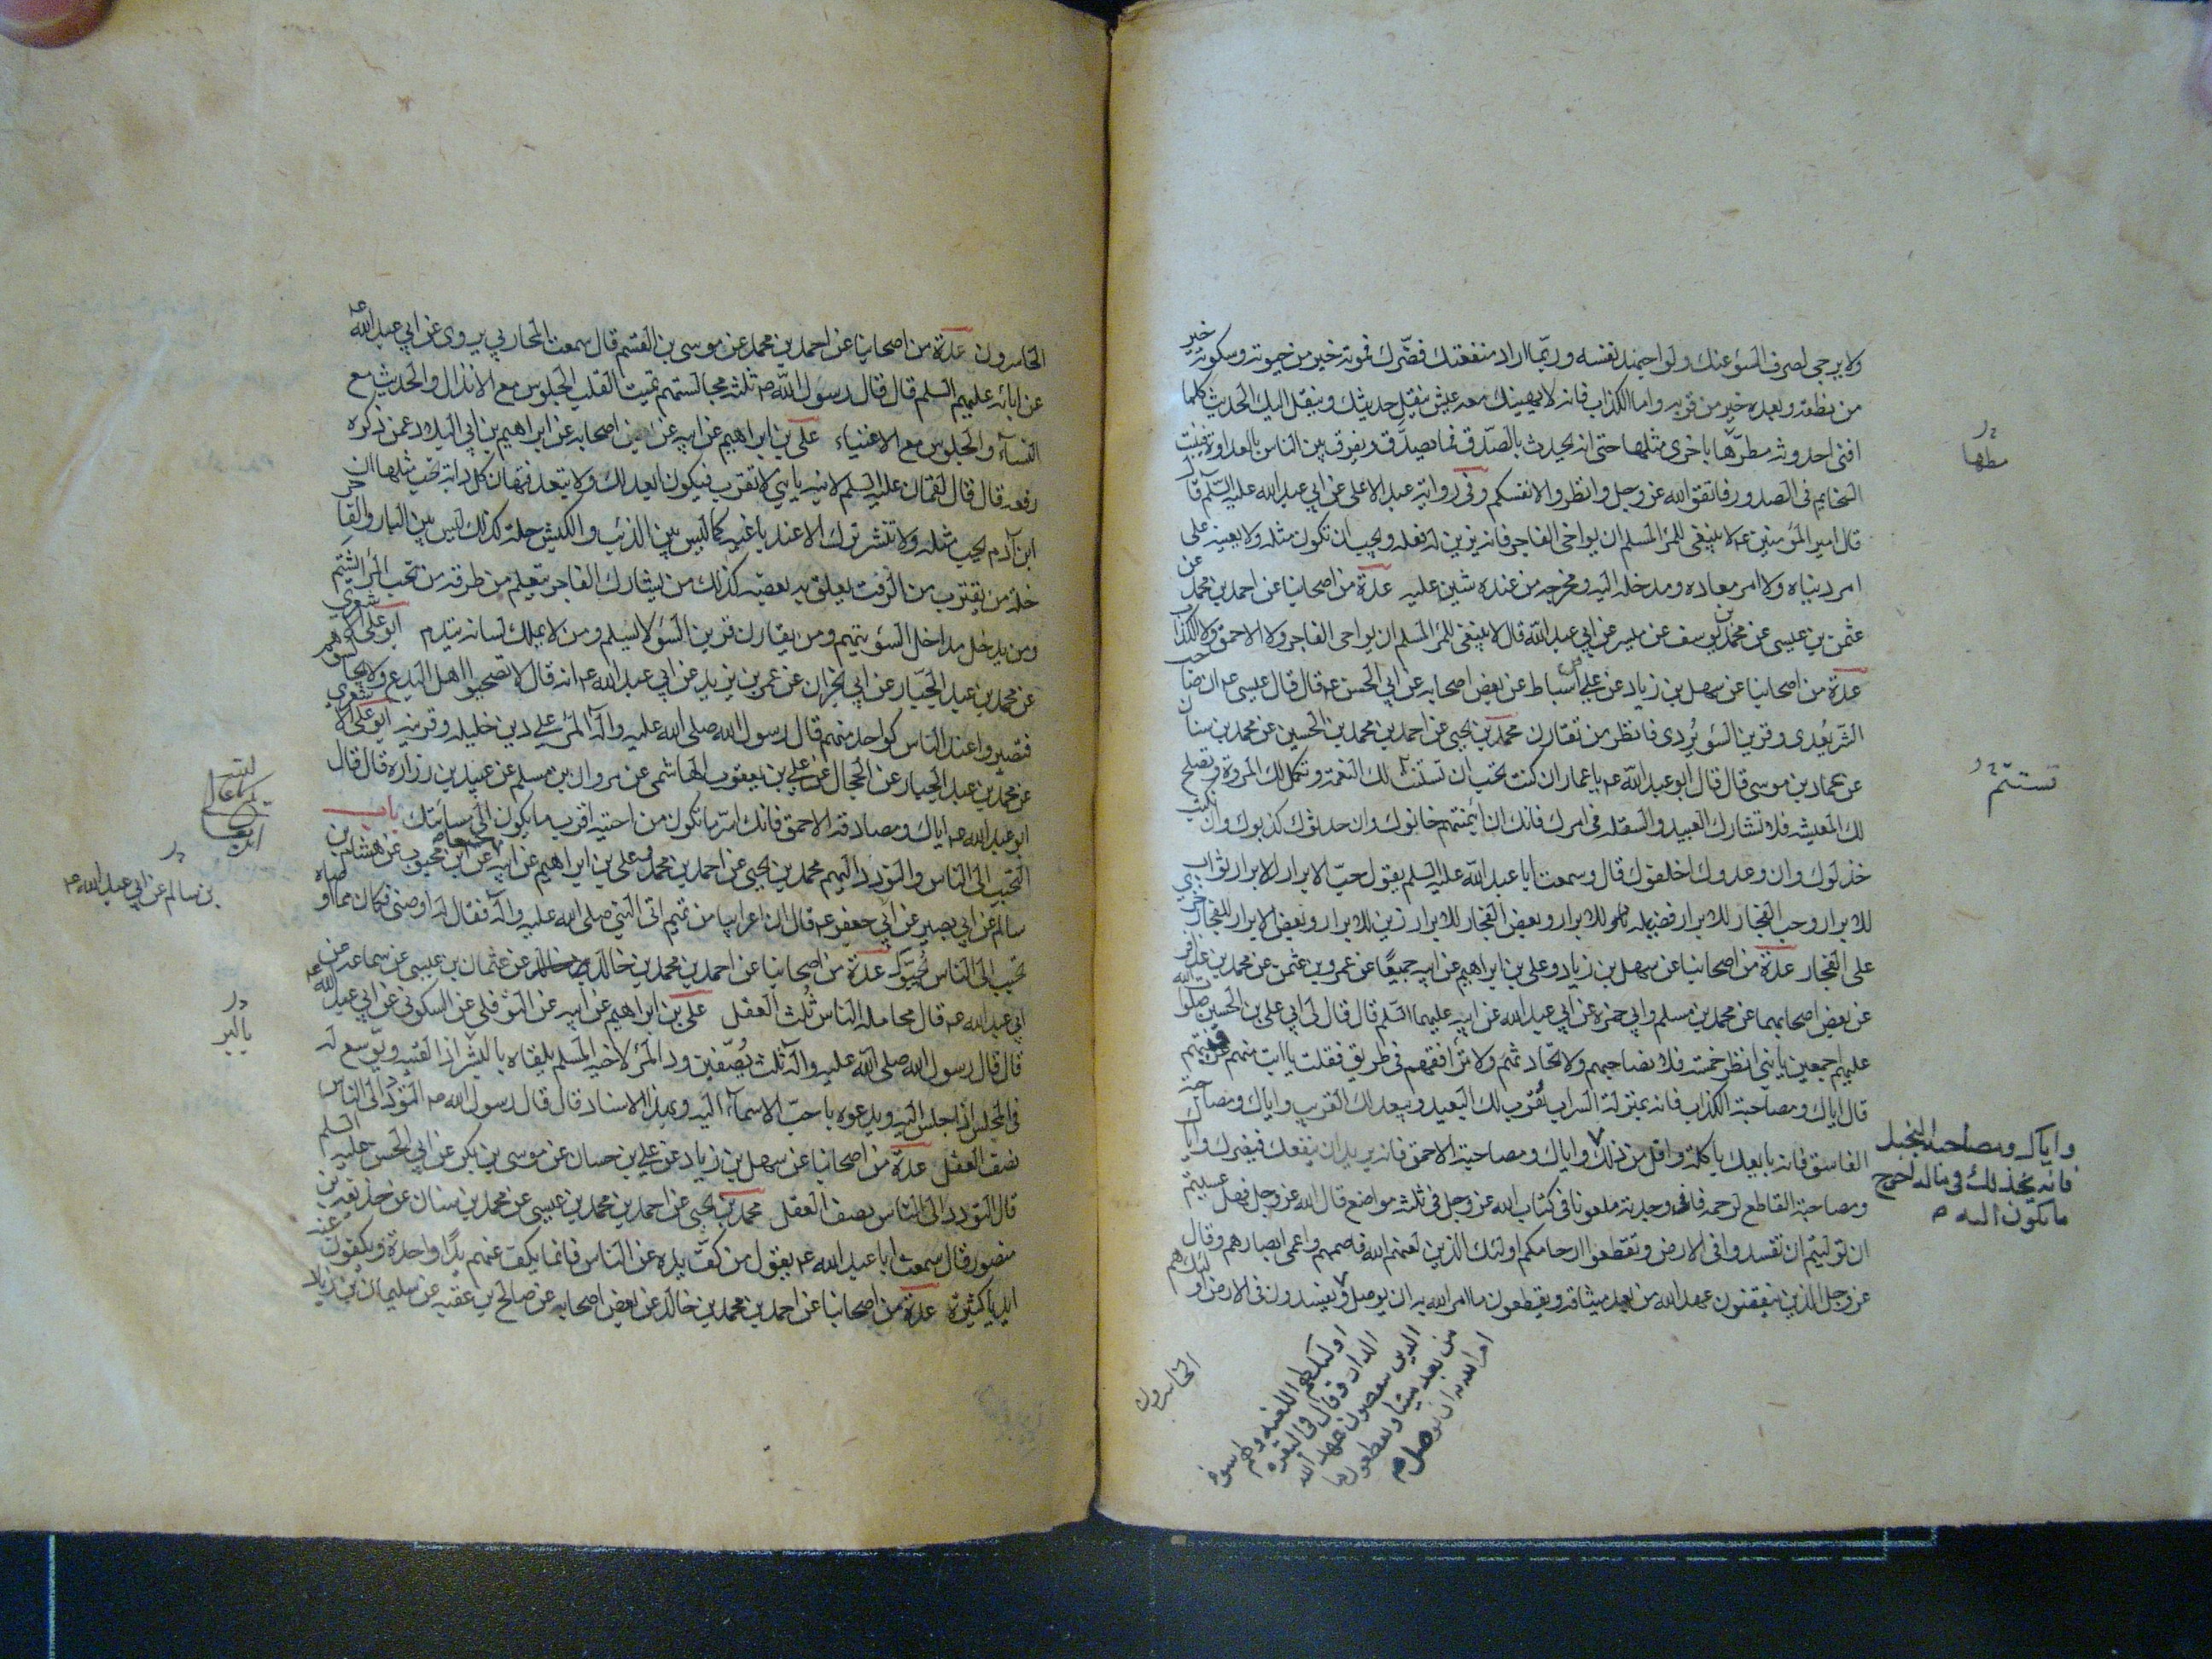 ولا يرجى لصرف السوء عنك ولو اجهد نفسه وربما اراد منفعتك فضرك فموته خير من حيوته وسكوته خير
من نطقه وبعده خير من قربه واما الكذاب فانه لا يهنيك معه عيش ينقل حديثك وينقل اليك الحديث كلما
افنى احدوثة مطرها باخرى مثلها حتى انه يحدث بالصدق فما يصدق ويفرق بين الناس بالعداوة فينبت
السخايم فى الصدور فاتقو الله عز وجل وانظروا لانفسكم وفى رواية عبد الاعلى عن ابي عبد الله عليه السلم قال
قال امير المؤمنين ع لا ينبغى للمرء المسلم ان يواخى الفاجر فانه يزين له فعله ويحب ان تكون مثله ولا يعينه على
امر دنياه ولا امر معاده ومدخله اليه ومخرجه من عنده شين عليه عدة من اصحابنا عن احمد بن محمد عن
عثمن بن عيسى عن محمد بن يوسف عن ميسر عن ابي عبد الله قال لا ينبغى للمرء المسلم ان يواخى الفاجر ولا الاحمق ولا الكذاب
عدة من اصحابنا عن سهل بن زياد عن على اسباط عن بعض اصحابه عن ابي الحسن ع قال قال عيسى ع ان صاحب
الشر يعدى وقرين السوء يردى فانظر من تقارن محمد بن يحيى عن احمد بن محمد بن الحسين عن محمد بن سنان
عن عمار بن موسى قال قال ابو عبد الله ع يا عمار ان كنت تحب ان تستتب لك النعمة وتكمل لك المروة وتصلح
لك المعيشه فلا تشارك العبيد والسفله فى امرك فانك ان ائتمنتهم خانوك وان حدثوك كذبوك وان نكبت
خذلوك وان وعدوك اخلفوك قال وسمعت ابا عبد الله عليه السلم يقول حب الابرار للابرار ثواب
للابرار وحب الفجار للابرار فضيله للابرار وبغض الفجار للابرار زين للابرار وبغض الابرار للفجار خزي
على الفجار عدة من اصحابنا عن سهل بن زياد وعلى بن ابراهيم عن ابيه جميعًا عن عمرو بن عثمن عن محمد بن عذافر
عن بعض اصحابهما عن محمد بن مسلم وابي حمزة عن ابي عبد الله عن ابيه عليهما السلم قال قال لى ابي على بن الحسين صلوات الله
عليهم اجمعين يا بنى انظر خمسة فلا تصاحبهم ولا تحادثهم ولا ترافقهم فى طريق فقلت يا ابت من هم عرفنيهم
قال اياك ومصاحبة الكذاب فانه بمنزلة السراب يقرب لك البعيد ويبعد لك القريب واياك ومصاحبة
الفاسق فانه بايعك باكلة واقل من ذلك واياك ومصاحبة الاحمق فانه يريد ان ينفعك فيضرك واياك
ومصاحبة القاطع لرحمه فانى وجدته ملعونا فى كتاب الله عز وجل فى ثلثه مواضع قال الله عز وجل فهل عسيتم
ان توليتم ان تفسدوا فى الارض وتقطعوا ارحامكم اولئك الذين لعنهم الله فاصمهم واعمى ابصارهم وقال
عز وجل الذين ينقضون عهد الله من بعد ميثاقه ويقطعون ما امر الله به ان يوصل ويفسدون فى الارض اولئك هم
الخاسرون
مطها
تستتم
واياك ومصاحبة البخيل
فانه يخذلك فى ماله احوج
ما تكون اليه
اولئك لهم اللعنة ولهم سوء
الدار وقال فى البقرة
الذين ينقضون عهد الله
من بعد ميثاقه ويقطعون ما
امر الله به ان يوصل
الخاسرون عدة من اصحابنا عن احمد بن محمد عن موسى بن القسم قال سمعت المحاربي يروى عن ابي عبد الله ع
عن ابائه عليهم السلم قال قال رسول الله ص ثلثه مجالستهم تميت القلب الجلوس مع الانذال والحديث مع
النساء والجلوس مع الاغنياء على بن ابراهيم عن ابيه عن بعض اصحابه عن ابراهيم بن ابي البلاد عمن ذكره
رفعه قال قال لقمان عليه السلم لابنه يا بني لا تقترب فيكون ابعد لك ولا تبعد فتهان كل دابة تحب مثلها ان
ابن آدم يحب مثله ولا تنشر بزك الا عند باغيه كما ليس بين الذئب والكبش خلة كذلك ليس بين البار والفاجر
خلة من يقترب من الزفت يعلق به بعضه كذلك من يشارك الفاجر يتعلم من طرقه من يحب المراء يشتم
ومن يدخل مداخل السوء يتهم ومن يقارن قرين السوء لا يسلم ومن لا يملك لسانه يندم ابو على الاشعري
عن محمد بن عبد الجبار عن ابي نجران عن عمر بن يزيد عن ابي عبد الله ع انه قال لا تصحبوا اهل البدع ولا تجالسوهم
فتصيروا عند الناس كواحد منهم قال رسول الله صلى الله عليه واله المرء على دين خليله وقرينه ابو على الاشعري
عن محمد بن عبد الجبار عن الحجال عن على بن يعقوب الهاشمى عن مروان بن مسلم عن عبيد بن زرارة قال قال
ابو عبد الله ع اياك ومصادقة الاحمق فانك اسر ما تكون من ناحيته اقرب ما يكون الى مسائتك باب
التحبب الى الناس والتودد اليهم محمد بن يحيى عن احمد بن محمد وعلى بن ابراهيم عن ابيه جميعا عن ابن محبوب عن هشام بن
سالم عن ابي بصير عن ابي جعفر ع قال ان اعرابيا من تميم اتى النبي صلى الله عليه واله فقال له اوصنى فكان مما اوصاه
تحبب الى الناس يحبوك عدة من اصحابنا عن احمد بن محمد بن خالد عن عثمان بن عيسى عن سماعه عن
ابي عبد الله ع قال مجامله الناس ثلث العقل على بن ابراهيم عن ابيه عن النوفلى عن السكونى عن ابي عبد الله ع
قال قال رسول الله صلى الله عليه واله ثلث يصفين ود المرء لاخيه المسلم يلقاه بالبشر اذا لقيه ويوسع له
فى المجلس اذا جلس اليه ويدعوه باحب الاسماء اليه وبهذا الاسناد قال قال رسول الله ص التودد الى الناس
نصف العقل عدة من اصحابنا عن سهل بن زياد عن على بن حسان عن موسى بن بكر عن ابي الحسن عليه السلم
قال التودد الى الناس نصف العقل محمد بن يحيى عن احمد بن محمد بن عيسى عن محمد بن سنان عن حذيفه بن
منصور قال سمعت ابا عبد الله ع يقول من كف يده عن الناس فانما يكف عنهم يدًا واحدة ويكفون عنه
ايديا كثيرة عدة من اصحابنا عن احمد بن محمد بن خالد عن بعض اصحابه عن صالح بن عقبه عن سليمان بن زياد
بن سالم عن ابي عبد الله ع
بالبر